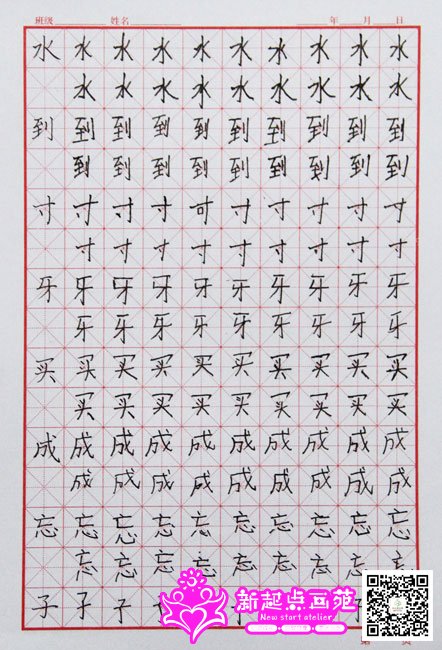 班级 姓名 年 月 日
水 水 水 水 水 水 水 水 水 水
水 水 水 水 水 水 水 水 水
到 到 到 到 到 到 到 到 到 到
到 到 到 到 到 到 到 到 到
寸 寸 寸 寸 可 寸 寸 寸 寸 寸
寸 寸 寸 寸 寸 寸 寸 寸 寸
牙 牙 牙 牙 牙 牙 牙 牙 牙 牙
牙 牙 牙 牙 牙 牙 牙 牙 牙
买 买 买 买 买 买 买 买 买 买
买 买 买 买 买 买 买 买 买
成 成 成 成 成 成 成 成 成 成
成 成 成 成 成 成 成 成 成
忘 忘 忘 忘 忘 忘 忘 忘 忘 忘
忘 忘 忘 忘 忘 忘 忘 忘 忘
子 子 子
新起点画苑
New start atelier